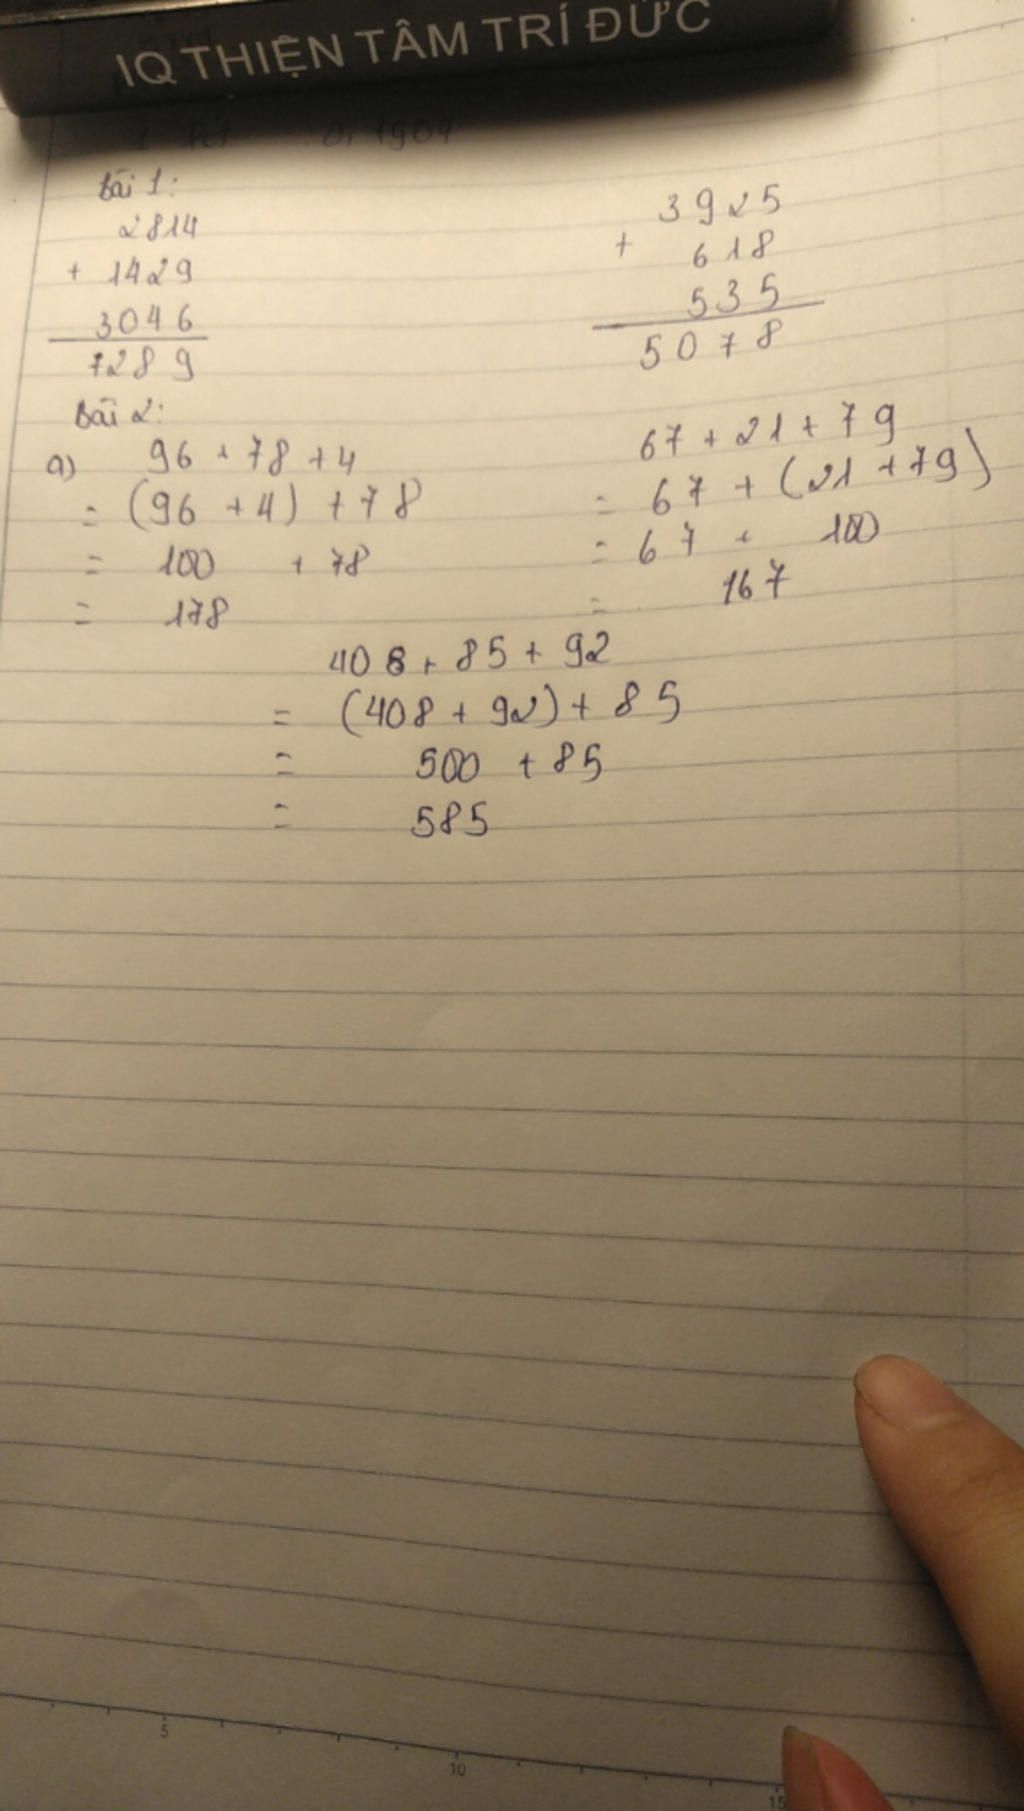 IQ THIỆN TÂM TRÍ ĐỨC
Bài 1:
2814
+ 1429
3046
7289
3925
+ 618
535
5078
Bài 2:
a) 96 + 78 + 4
= (96 + 4) + 78
= 100 + 78
= 178
67 + 21 + 79
= 67 + (21 + 79)
= 67 + 100
= 167
408 + 85 + 92
= (408 + 92) + 85
= 500 + 85
= 585
5
10
15